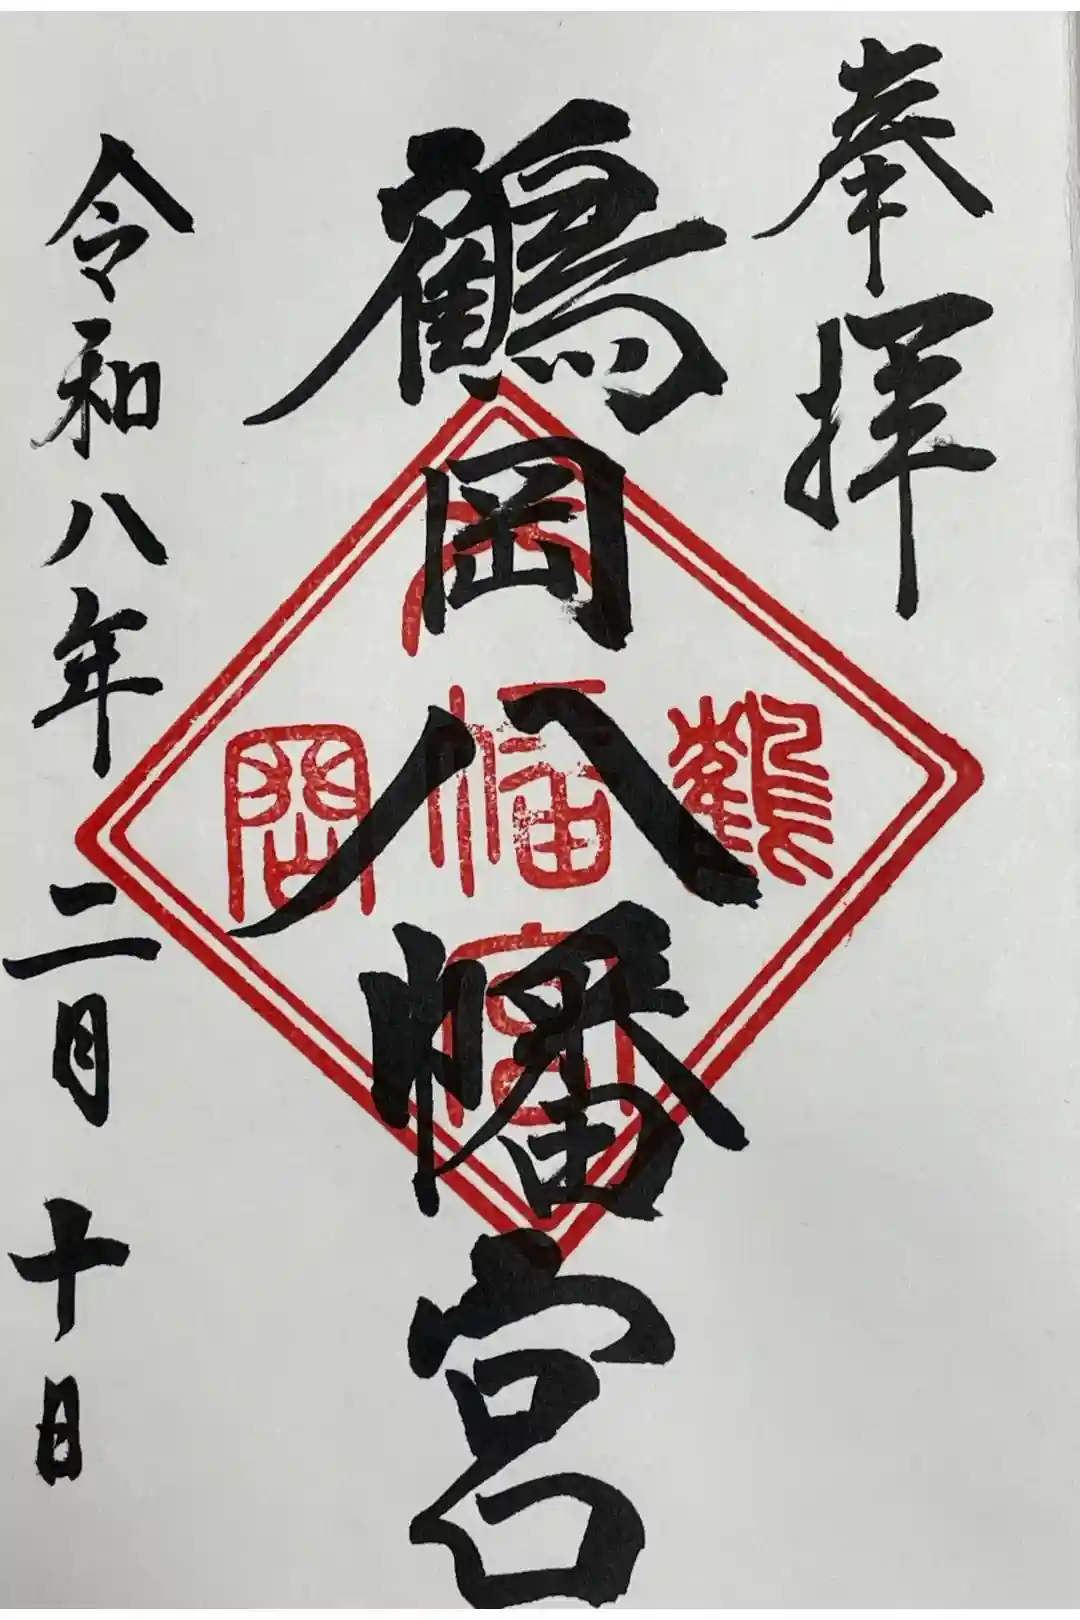 奉拝
鶴岡八幡宮
鶴岡八幡宮
令和八年二月十日